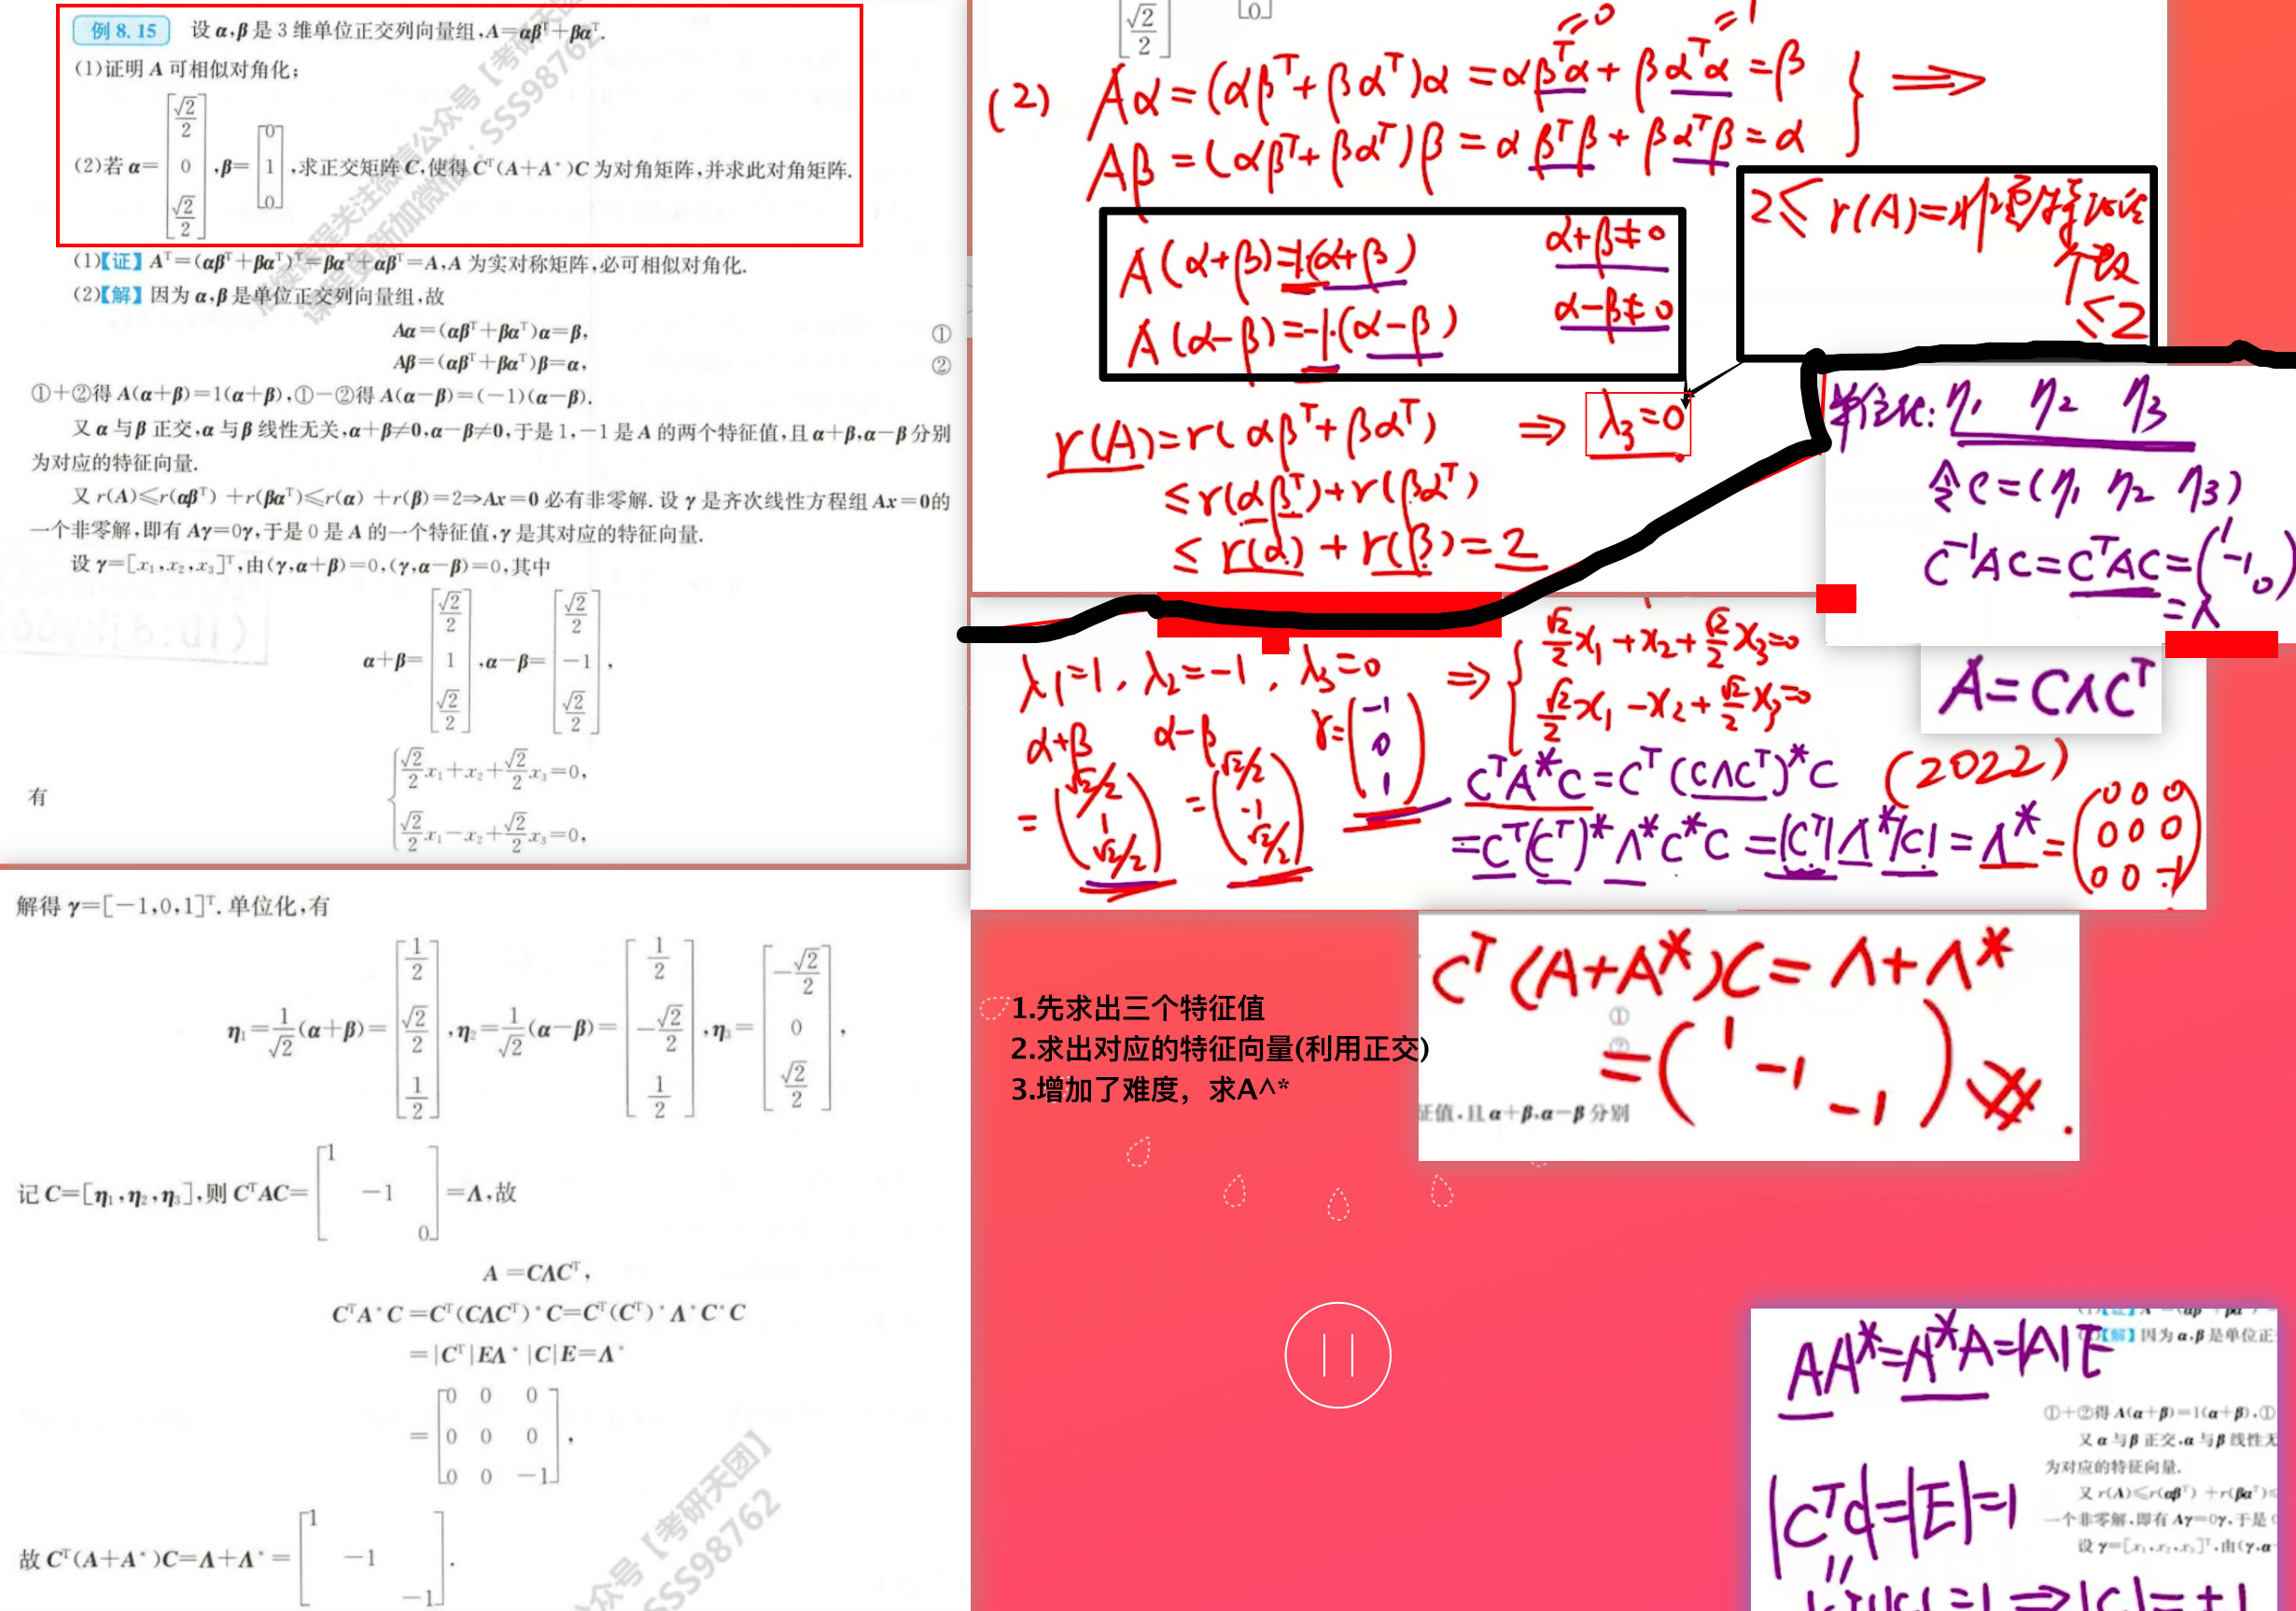 例 8.15 设 α,β 是 3 维单位正交列向量组,A=αβᵀ+βαᵀ.
(1)证明 A 可相似对角化;
(2)若 α=[√2/2, 0, √2/2], β=[0, 1, 0], 求正交矩阵 C,使得 Cᵀ(A+A*)C 为对角矩阵,并求此对角矩阵.
(1)【证】 Aᵀ=(αβᵀ+βαᵀ)ᵀ=βαᵀ+αβᵀ=A,A 为实对称矩阵,必可相似对角化.
(2)【解】 因为 α,β 是单位正交列向量组,故
Aα=(αβᵀ+βαᵀ)α=β, ①
Aβ=(αβᵀ+βαᵀ)β=α, ②
①+②得 A(α+β)=1(α+β),①-②得 A(α-β)=(-1)(α-β).
又 α 与 β 正交,α 与 β 线性无关,α+β≠0,α-β≠0,于是 1,-1 是 A 的两个特征值,且 α+β,α-β 分别
为对应的特征向量.
又 r(A)≤r(αβᵀ)+r(βαᵀ)≤r(α)+r(β)=2⇒Ax=0 必有非零解. 设 γ 是齐次线性方程组 Ax=0 的
一个非零解,即有 Aγ=0γ,于是 0 是 A 的一个特征值,γ 是其对应的特征向量.
设 γ=[x₁,x₂,x₃]ᵀ,由(γ,α+β)=0,(γ,α-β)=0,其中
α+β=[√2/2, 1, √2/2], α-β=[√2/2, -1, √2/2],
有
√2/2 x₁+x₂+√2/2 x₃=0,
√2/2 x₁-x₂+√2/2 x₃=0,
解得 γ=[-1,0,1]ᵀ. 单位化,有
η₁=1/√2(α+β)=[1/2, √2/2, 1/2], η₂=1/√2(α-β)=[1/2, -√2/2, 1/2], η₃=[-√2/2, 0, √2/2],
记 C=[η₁,η₂,η₃],则 CᵀAC=[1 -1 0]=Λ,故
A=CΛCᵀ,
CᵀA*C=Cᵀ(CΛCᵀ)*C=Cᵀ(Cᵀ)*Λ*C*C
=|Cᵀ|EΛ*|C|E=Λ*
=
0 0 0
0 0 0
0 0 -1
,
故 Cᵀ(A+A*)C=Λ+Λ*=[1 -1 -1].
√2/2
0
(2) Aα=(αβᵀ+βαᵀ)α=αβᵀα+βαᵀα=β
=0 =1
Aβ=(αβᵀ+βαᵀ)β=αβᵀβ+βαᵀβ=α
} ⟹
A(α+β)=1·(α+β) α+β≠0
A(α-β)=-1·(α-β) α-β≠0
2≤ r(A)=非零特征值
个数
≤2
r(A)=r(αβᵀ+βαᵀ) ⇒ λ₃=0
≤r(αβᵀ)+r(βαᵀ)
≤ r(α)+r(β)=2
单位化: η₁ η₂ η₃
令C=(η₁ η₂ η₃)
C⁻¹AC=CᵀAC=(1 -1 0)
=Λ
A=CΛCᵀ
λ₁=1, λ₂=-1, λ₃=0 ⇒ {√2/2x₁+x₂+√2/2x₃=0
√2/2x₁-x₂+√2/2x₃=0
α+β α-β γ=(-1 0 1)
=(√2/2 1 √2/2) =(√2/2 -1 √2/2)
CᵀA*C=Cᵀ(CΛCᵀ)*C (2022)
=Cᵀ(Cᵀ)*Λ*C*C=|Cᵀ|Λ*|C|=Λ*=
0 0 0
0 0 0
0 0 -1
1.先求出三个特征值
2.求出对应的特征向量(利用正交)
3.增加了难度，求A^*
Cᵀ(A+A*)C=Λ+Λ*
①
②
=(1 -1 -1)
征值,且 α+β,α-β 分别
【解】因为 α,β 是单位正
AA*=A*A=|A|E
①+②得 A(α+β)=1(α+β),①
又 α 与 β 正交,α 与 β 线性无
为对应的特征向量.
又 r(A)≤r(αβᵀ)+r(βαᵀ)≤
|CᵀC|=|E|=1
一个非零解,即有 Aγ=0γ,于是 0
设 γ=[x₁,x₂,x₃]ᵀ,由(γ,α